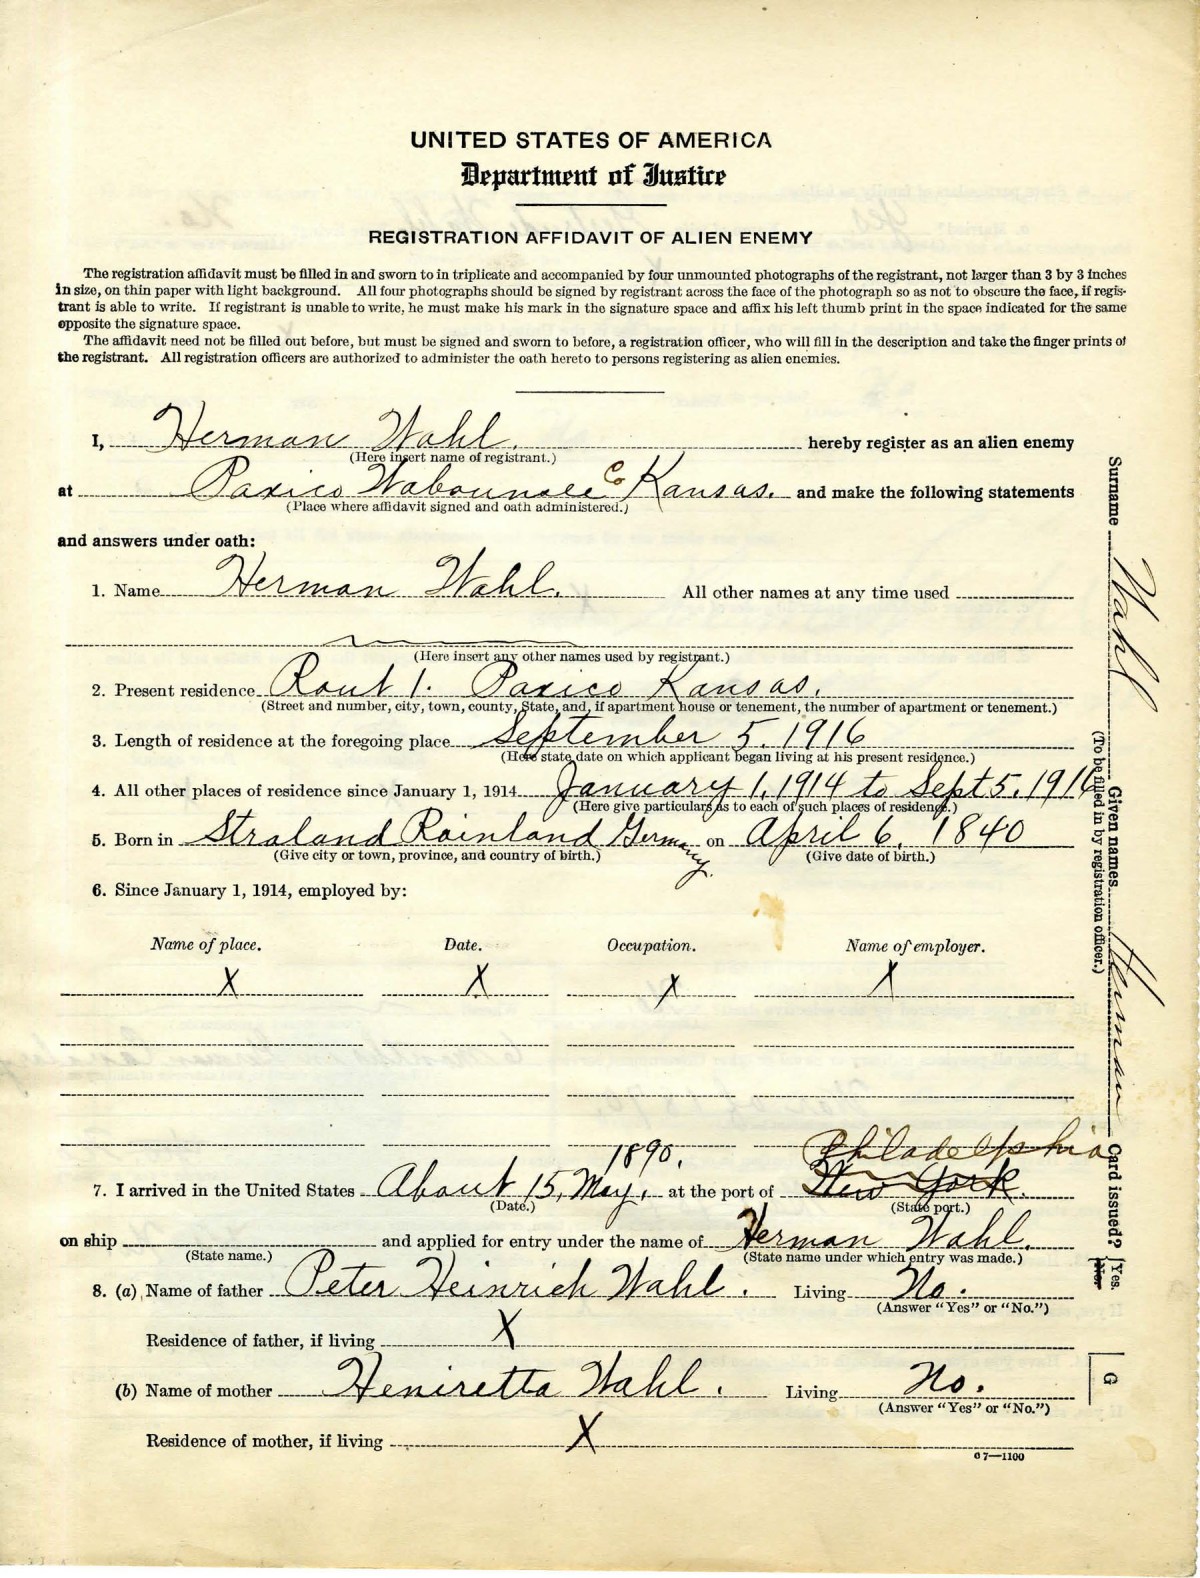 UNITED STATES OF AMERICA
Department of Justice
REGISTRATION AFFIDAVIT OF ALIEN ENEMY
The registration affidavit must be filled in and sworn to in triplicate and accompanied by four unmounted photographs of the registrant, not larger than 3 by 3 inches
in size, on thin paper with light background. All four photographs should be signed by registrant across the face of the photograph so as not to obscure the face, if regis-
trant is able to write. If registrant is unable to write, he must make his mark in the signature space and affix his left thumb print in the space indicated for the same
opposite the signature space.
The affidavit need not be filled out before, but must be signed and sworn to before, a registration officer, who will fill in the description and take the finger prints of
the registrant. All registration officers are authorized to administer the oath hereto to persons registering as alien enemies.
I, Herman Wahl. hereby register as an alien enemy
(Here insert name of registrant.)
at Paxico Wabaunsee Co Kansas. and make the following statements
(Place where affidavit signed and oath administered.)
and answers under oath:
1. Name Herman Wahl. All other names at any time used
(Here insert any other names used by registrant.)
2. Present residence Rout 1. Paxico Kansas.
(Street and number, city, town, county, State, and, if apartment house or tenement, the number of apartment or tenement.)
3. Length of residence at the foregoing place September 5, 1916
(Here state date on which applicant began living at his present residence.)
4. All other places of residence since January 1, 1914 January 1, 1914 to Sept 5, 1916
(Here give particulars as to each of such places of residence.)
5. Born in Straland Rainland Germany. on April 6, 1840
(Give city or town, province, and country of birth.) (Give date of birth.)
6. Since January 1, 1914, employed by:
Name of place. Date. Occupation. Name of employer.
X X X X
1890. Philadelphia
7. I arrived in the United States About 15, May, at the port of New York.
(Date.) (State port.)
on ship and applied for entry under the name of Herman Wahl.
(State name.) (State name under which entry was made.)
8. (a) Name of father Peter Heinrich Wahl. Living No.
(Answer "Yes" or "No.")
Residence of father, if living X
(b) Name of mother Heniretta Wahl. Living No.
(Answer "Yes" or "No.")
Residence of mother, if living X
67—1100
Surname Wahl Given names Herman Card issued? Yes. No.
(To be filled in by registration officer.)
G